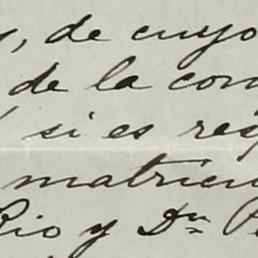 , de cuyo
de la con
si es res
matricu
Rio y Dn